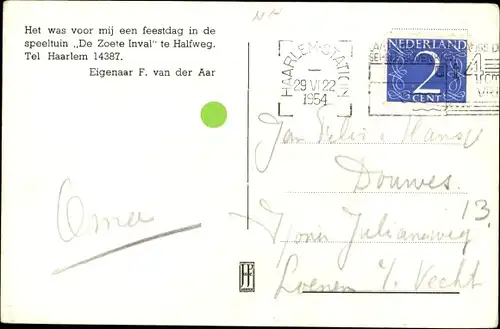 Het was voor mij een feestdag in de
speeltuin „De Zoete Inval" te Halfweg.
Tel Haarlem 14387.
Eigenaar F. van der Aar
HAARLEM-STATION
29 VI 22
1954
NEDERLAND
2
CENT
Jan Felix & Hansje
Douwes.
Julianaweg 13.
Loenen a/ Vecht
Oma